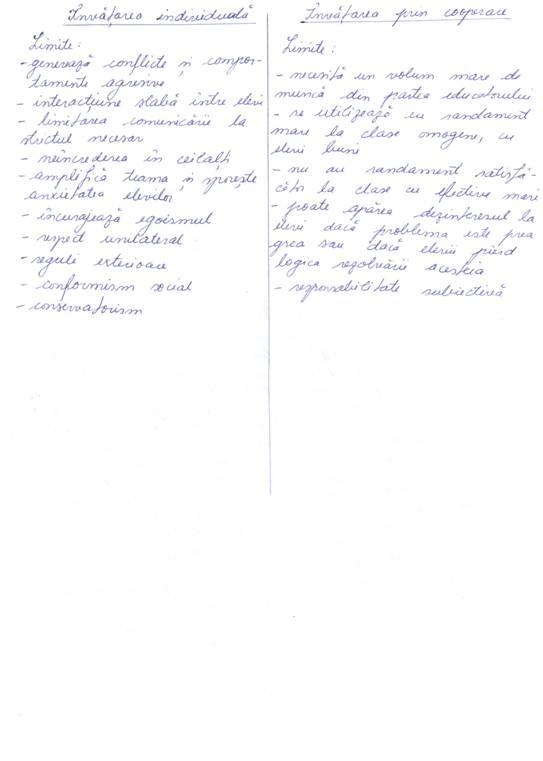 Învățarea individuală
Limite:
- generează conflicte și compor-
tamente agresive
- interacțiune slabă între elevi
- limitarea comunicării la
strictul necesar
- neîncrederea în ceilalți
- amplifică teama și sporește
anxietatea elevilor
- încurajează egoismul
- respect unilateral
- reguli exterioare
- conformism social
- conservatorism
Învățarea prin cooperare
Limite:
- necesită un volum mare de
muncă din partea educatorului
- se utilizează cu randament
mare la clase omogene, cu
elevi buni
- nu au randament satisfă-
cător la clase cu efective mari
- poate apărea dezinteresul la
elevi dacă problema este prea
grea sau dacă elevii pierd
logica rezolvării acesteia
- responsabilitate subiectivă